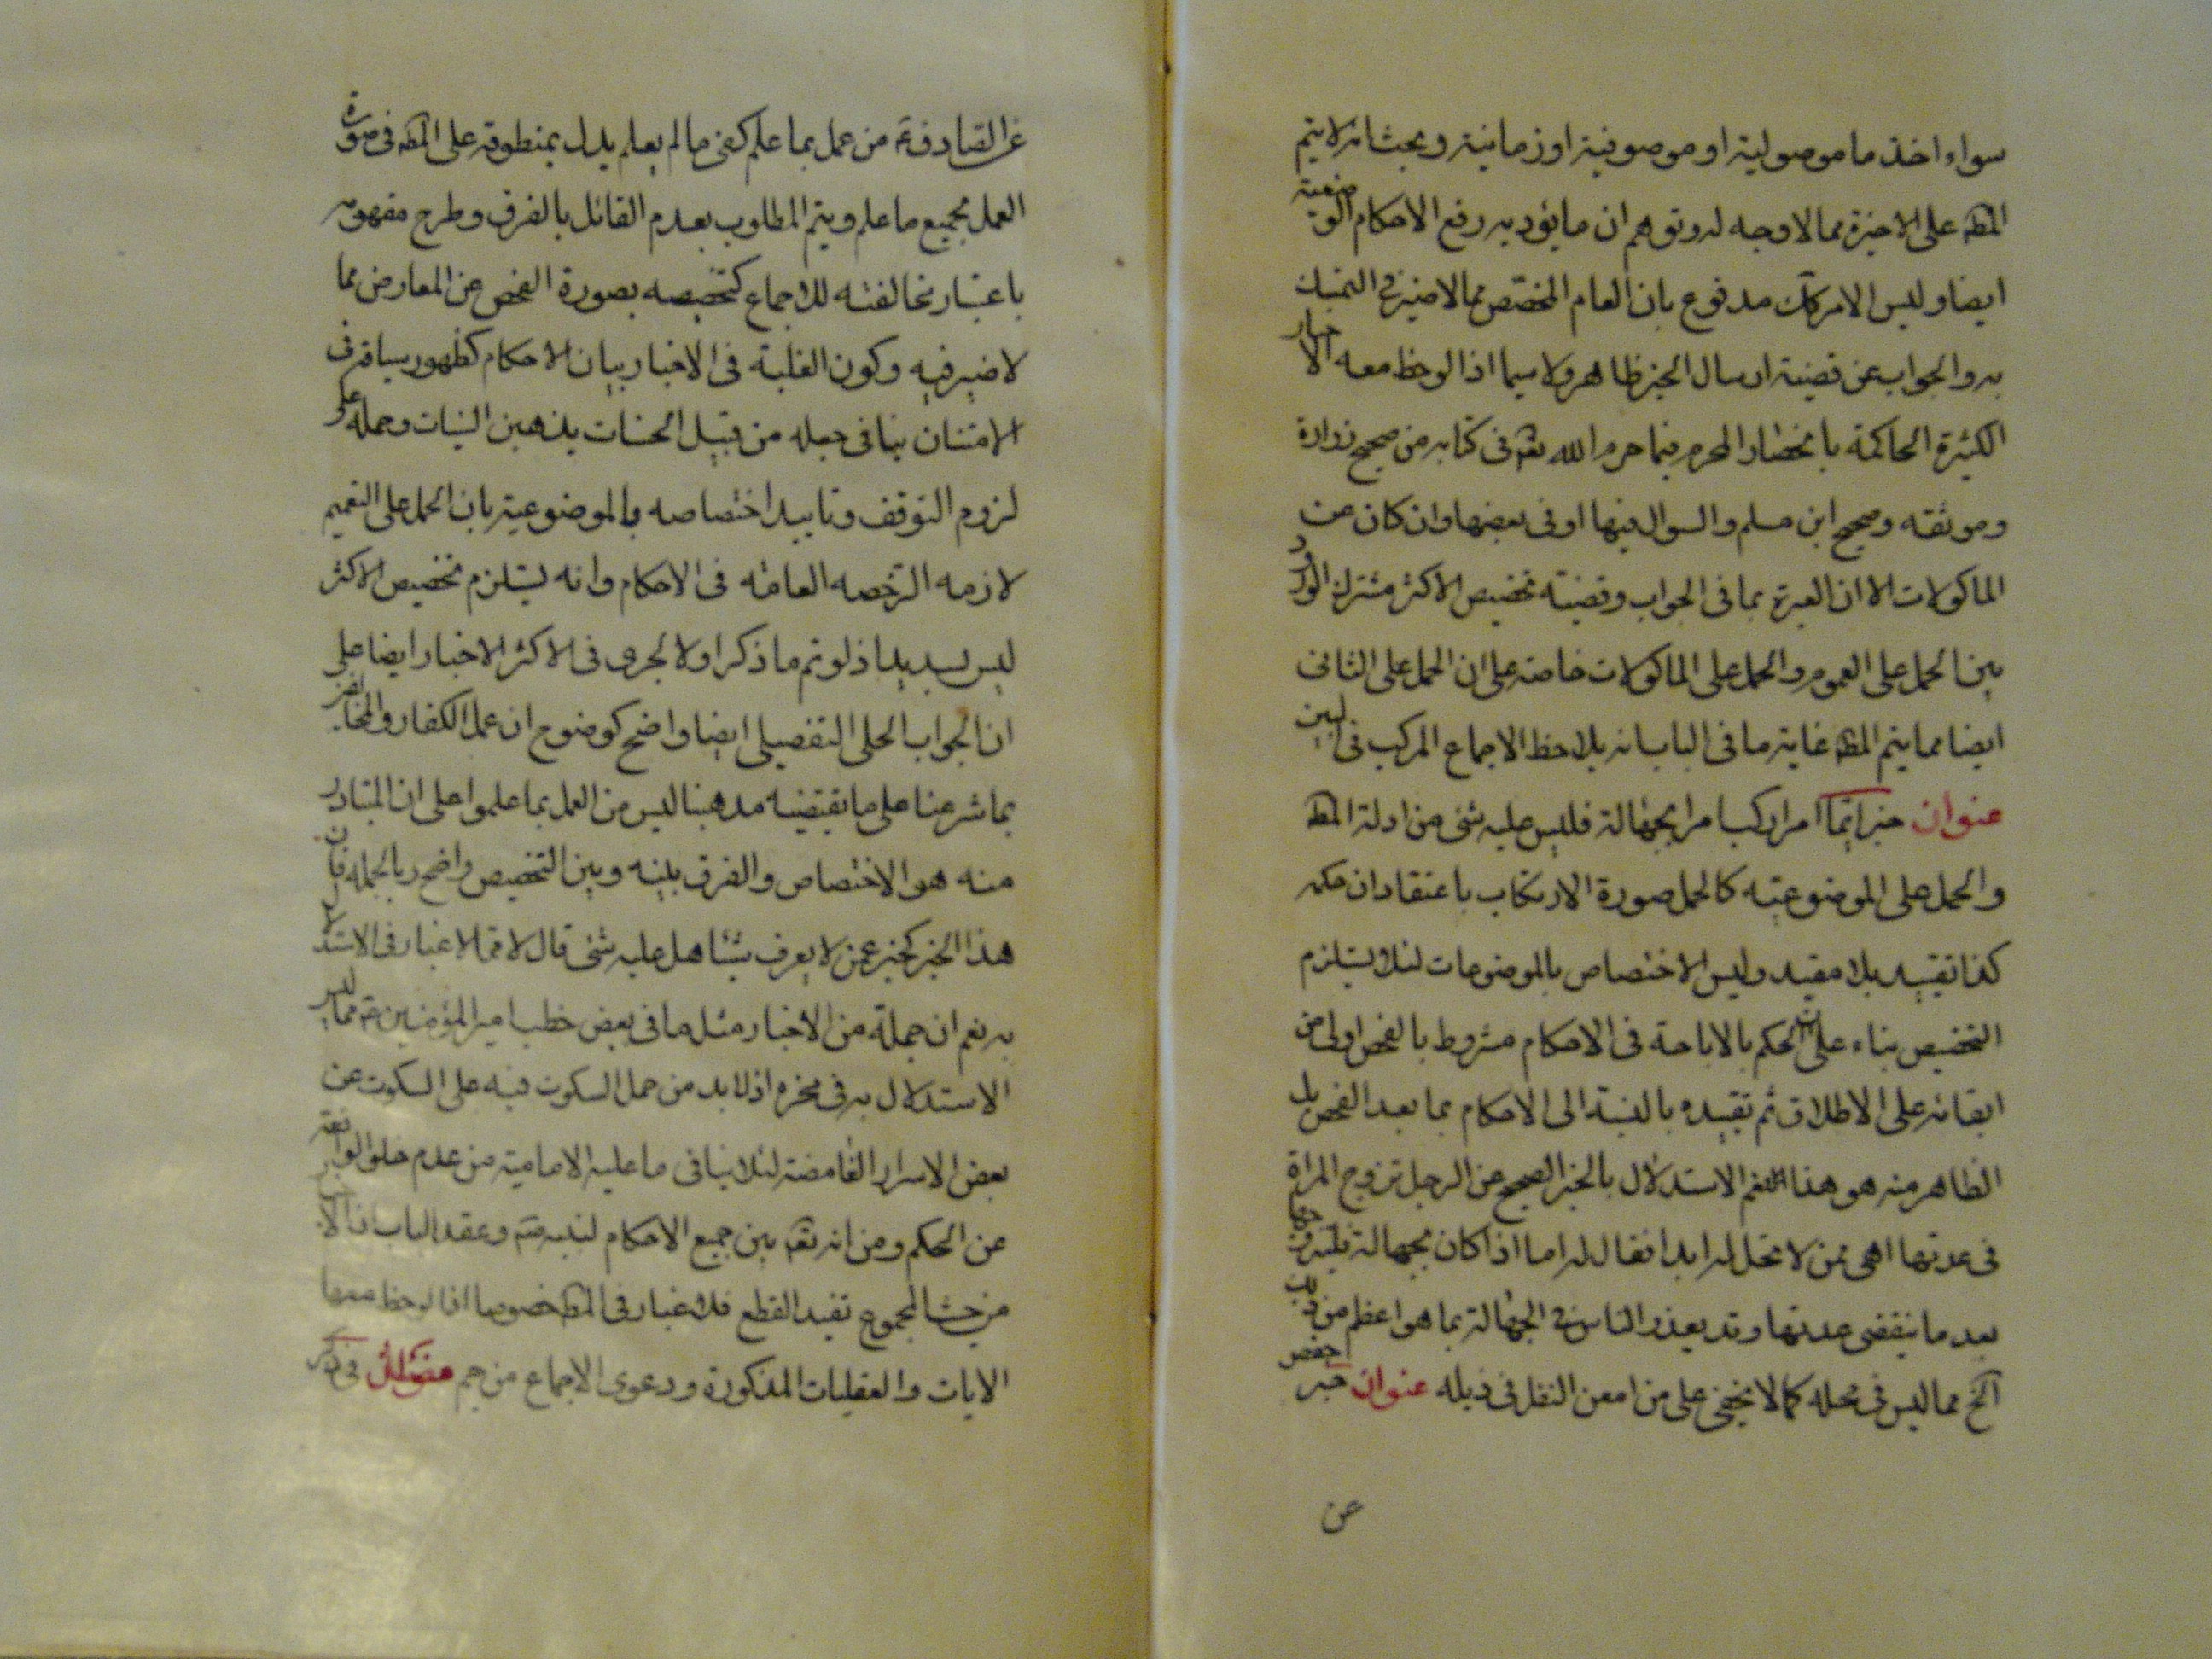 سواء اخذ ما موصولية او موصوفية او زمانية وبحث انه لا يتم
المط على الاخيرة مما لا وجه له وتوهم ان ما يؤد به رفع الاحكام الوضعية
ايضا وليس الامر كك مدفوع بان العام المخصّص مما لا ضير فى التمسك
به والجواب عن قضية ارسال الخبر ظاهر ولا سيما اذا لوحظ معه الاخبار
الكثيرة الحاكمة بانحصار المحرم فيما حرم الله تعه فى كتابه من صحيح زرارة
وموثقه وصحيح ابن مسلم والسوال فيها او فى بعضها وان كان عن
الماكولات الا ان العبرة بما فى الجواب وقضية تخصيص الاكثر مشترك الورود
بين الحمل على العموم والحمل على الماكولات خاصة على ان الحمل على الثانى
ايضا مما يتم المط غاية ما فى الباب انه يلاحظ الاجماع المركب فى البين
عنوان خبر ايّما امرء ركب امرا بجهالة فليس عليه شئ من ادلة المط
والحمل على الموضوعية كالحمل صورة الارتكاب باعتقاد ان حكمه
كذا تقييد بلا مقيد وليس الاختصاص بالموضوعات لئلا يستلزم
التخصيص بناء على ان الحكم بالاباحة فى الاحكام مشروط بالفحص اولى من
ابقائه على الاطلاق ثم تقييده بالنسبة الى الاحكام بما بعد الفحص بل
الظاهر منه هو هذا نعم الاستدلال بالخبر الصحيح عن الرجل تزوج المراة
فى عدتها اهى ممن لا تحل له ابدا فقال له اما اذا كان بجهالة فليتزوجها
بعد ما ينقضى عدتها وقد يعذر الناس فى الجهالة بما هو اعظم من ذلك
الخ مما ليس فى محله كما لا يخفى على من امعن النظر فى ذيله عنوان خبر حفص
عن
عن الصادق عم من عمل بما علم كفى ما لم يعلم يدل بمنطوقه على المط فى صورة
العمل بجميع ما علم ويتم المطلوب بعدم القائل بالفرق وطرح مفهومه
باعتبار مخالفته للاجماع كتخصيصه بصورة الفحص عن المعارض مما
لا ضير فيه وكون الغلبة فى الاخبار بيان الاحكام كظهور سياقه فى
الامتنان ينافى جعله من قبيل الحسنات يذهبن السيئات وحمله على
لزوم التوقف وتاييد اختصاصه بالموضوعية بان الحمل على التعميم
لازمه الرخصه العامه فى الاحكام وانه يستلزم تخصيص الاكثر
ليس بسديد اذ لو تم ما ذكر اولا لجرى فى الاكثر الاخبار ايضا على
ان الجواب الحلى التفصيلى ايضا واضح كوضوح ان عمل الكفار والمخالفين
بما شرعنا على ما تقتضيه مذهبنا ليس من العمل بما علموا على ان المتبادر
منه هو الاختصاص والفرق بينه وبين التخصيص واضح وبالجملة فان
هذا الخبر كخبر عمن لا يعرف شيئا هل عليه شئ قال لا مما لا غبار فى الاستدلال
به نعم ان جملة من الاخبار مثل ما فى بعض خطب امير المؤمنين عم مما ليس
الاستدلال به فى مخره اذ لا بد من حمل السكوت فيه على السكوت عن
بعض الاسرار الغامضة لئلا ينافى ما عليه الامامية من عدم خلو الواقعة
عن الحكم ومن انه تعه بين جميع الاحكام لنبيه صم وعقد الباب ان الاخبار
من حيث المجموع تفيد القطع فلا غبار فى المط خصوصا اذا لوحظ معها
الايات والعقليات المذكورة ودعوى الاجماع من جم فى ذكر